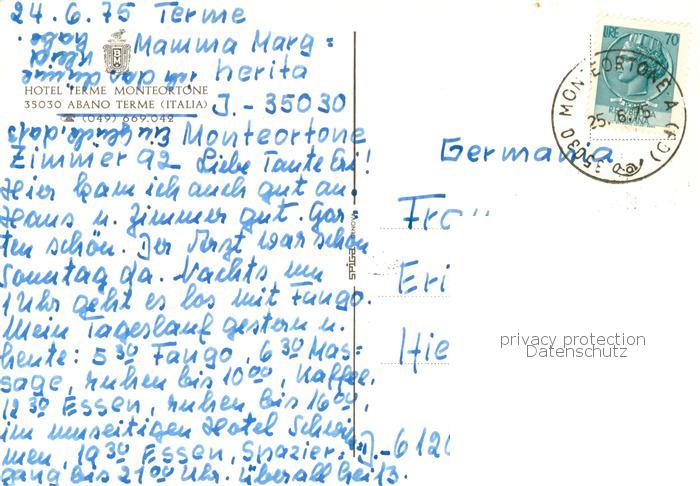 24.6.75 Terme
Mamma Marg=
herita
HOTEL TERME MONTEORTONE
35030 ABANO TERME (ITALIA)
J.-35030
(049) 669.042
Ein Glück, daß
ich das dünne
Kleid
habe.
Monteortone
Zimmer 92 Liebe Tante Eri!
Hier kam ich auch gut an.
Haus u. Zimmer gut. Gar-
ten schön. Der Arzt war schon
Sonntag da. Nachts um
1 Uhr geht es los mit Fango.
Mein Tageslauf gestern u.
heute: 5 30 Fango, 6 30 Mas=
sage, ruhen bis 10 00, Kaffee,
12 30 Essen, ruhen bis 16 00,
im
Hotel Schwim
men, 19 30 Essen, Spazier=
gang bis 21 00 Uhr. überall heiß.
LIRE 70
MONTEORTONE A (PD)
25.6.75
35030
Germania
Fra
Eri
Hie
J.-612
privacy protection
Datenschutz